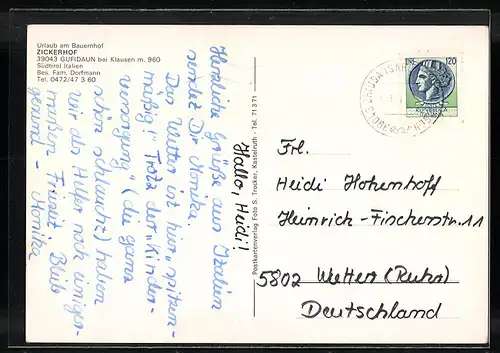 Urlaub am Bauernhof
ZICKERHOF
39043 GUFIDAUN bei Klausen m. 960
Südtirol Italien
Bes. Fam. Dorfmann
Tel. 0472/47 3 60
Hallo, Heidi!
Herzliche Grüße aus Italien
sendet Dir Monika.
Das Wetter ist hier "spitzen-
mäßig"! Trotz der "Kinder-
versorgung" (die ganz
schön schlaucht) haben
wir als Helfer noch einiger-
maßen Freizeit. Bleib
gesund - Monika
Postkartenverlag Foto S. Trocker, Kastelruth - Tel. 71371
LIRE 120
Frl.
Heidi Hohenhoff
Heinrich-Fischerstr. 11
5802 Wetter (Ruhr)
Deutschland